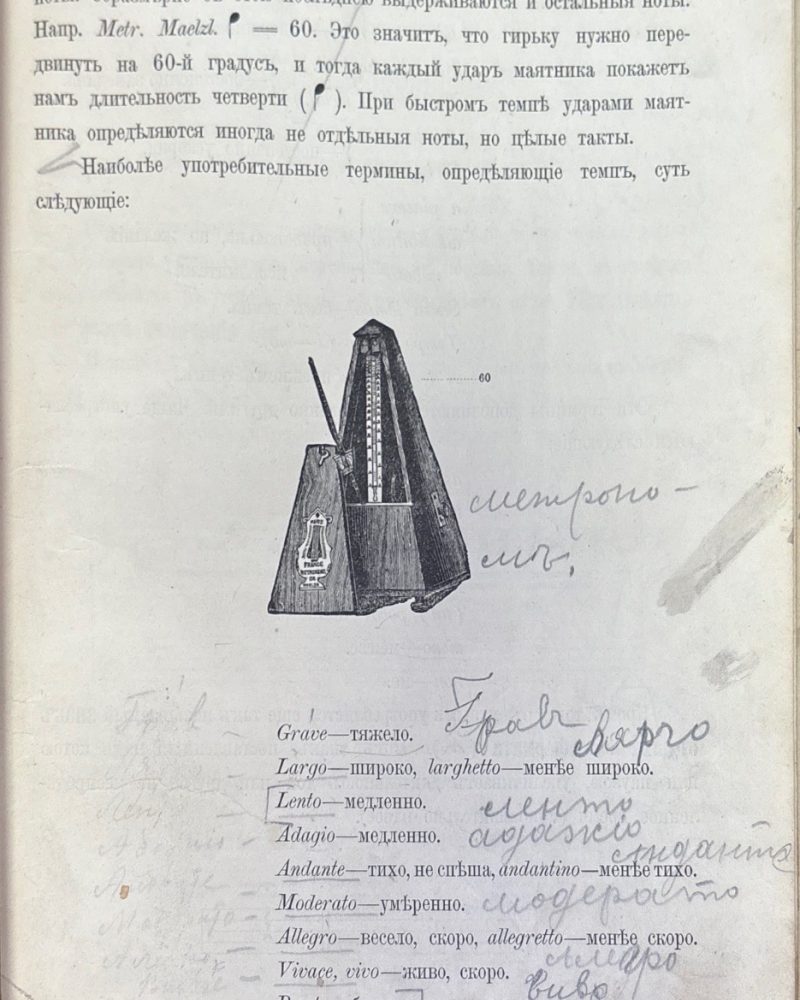 выдерживаются и остальныя ноты.
Напр. Metr. Maelzl. = 60. Это значитъ, что гирьку нужно пере-
двинуть на 60-й градусъ, и тогда каждый ударъ маятника покажетъ
намъ длительность четверти ( ). При быстромъ темпѣ ударами маят-
ника опредѣляются иногда не отдѣльныя ноты, но цѣлые такты.
Наиболѣе употребительные термины, опредѣляющіе темпъ, суть
слѣдующіе:
60
метроно-
мъ,
FRANCE
Гравъ
Grave—тяжело.
Ларго
Largo—широко, larghetto—менѣе широко.
Lento—медленно. ленто
Adagio—медленно. адажіо
анданте
Andante—тихо, не спѣша, andantino—менѣе тихо.
Moderato—умѣренно. модерато
Allegro—весело, скоро, allegretto—менѣе скоро.
Vivace, vivo—живо, скоро.
виво